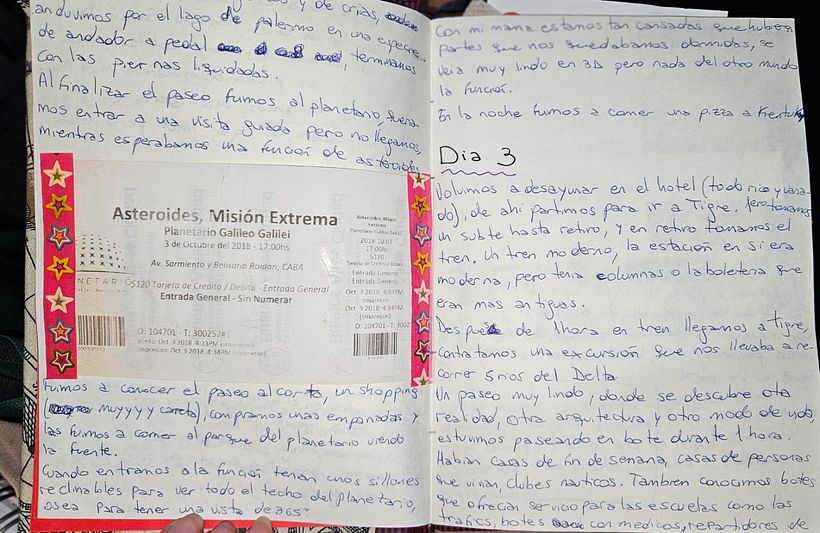 y de crias,
anduvimos por el lago de palermo en una especie
de andador a pedal, terminamos
con las piernas liquidadas.
Al finalizar el paseo fuimos al planetario,
mos entrar a una visita guiada pero no llegamos,
mientras esperabamos una función de asteroides
Asteroides, Misión Extrema
Planetario Galileo Galilei
3 de Octubre del 2018 - 17:00hs
Av. Sarmiento y Belisario Roldán, CABA
O$120 Tarjeta de Credito / Debito - Entrada General
Entrada General - Sin Numerar
O: 104701 - T: 300252#1
Venta: Oct 3 2018 4:33PM (smarecos)
Impresion: Oct 3 2018 4:34PM (smarecos)
Asteroides, Misión
Extrema
Planetario Galileo Galilei
2018-10-03
17:00hs
$120
Tarjeta de Credito / Debito
Entrada General
Entrada General
Oct 3 2018 4:33PM
(smarecos)
Oct 3 2018 4:34PM
(smarecos)
O: 104701 - T: 3002
fuimos a conocer el paseo alcorta, un shopping
(muyyyy careta), compramos unas empanadas y
las fuimos a comer al parque del planetario viendo
la fuente.
Cuando entramos a la función tenian unos sillones
reclinables para ver todo el techo del planetario,
osea para tener una vista de 365°
Con mi mama estamos tan cansadas que hubieron
partes que nos quedabamos dormidas, se
veia muy lindo en 3D pero nada del otro mundo
la función.
En la noche fuimos a comer una pizza a Kentuky
Dia 3
Volvimos a desayunar en el hotel (todo rico y varia-
do), de ahi partimos para ir a Tigre. Pero tomamos
un subte hasta retiro, y en retiro tomamos el
tren. Un tren moderno, la estación en si era
moderna, pero tenia columnas o la boleteria que
eran mas antiguas.
Despues de 1 hora en tren llegamos a Tigre,
contratamos una excursión que nos llevaba a re-
correr 5 rios del Delta.
Un paseo muy lindo, donde se descubre otra
realidad, otra arquitectura y otro modo de vida
estuvimos paseando en bote durante 1 hora.
Habian casas de fin de semana, casas de personas
que vivian, clubes nauticos. Tambien conocimos botes
que ofrecian servicio para las escuelas como las
trafics, botes con medicos, repartidores de